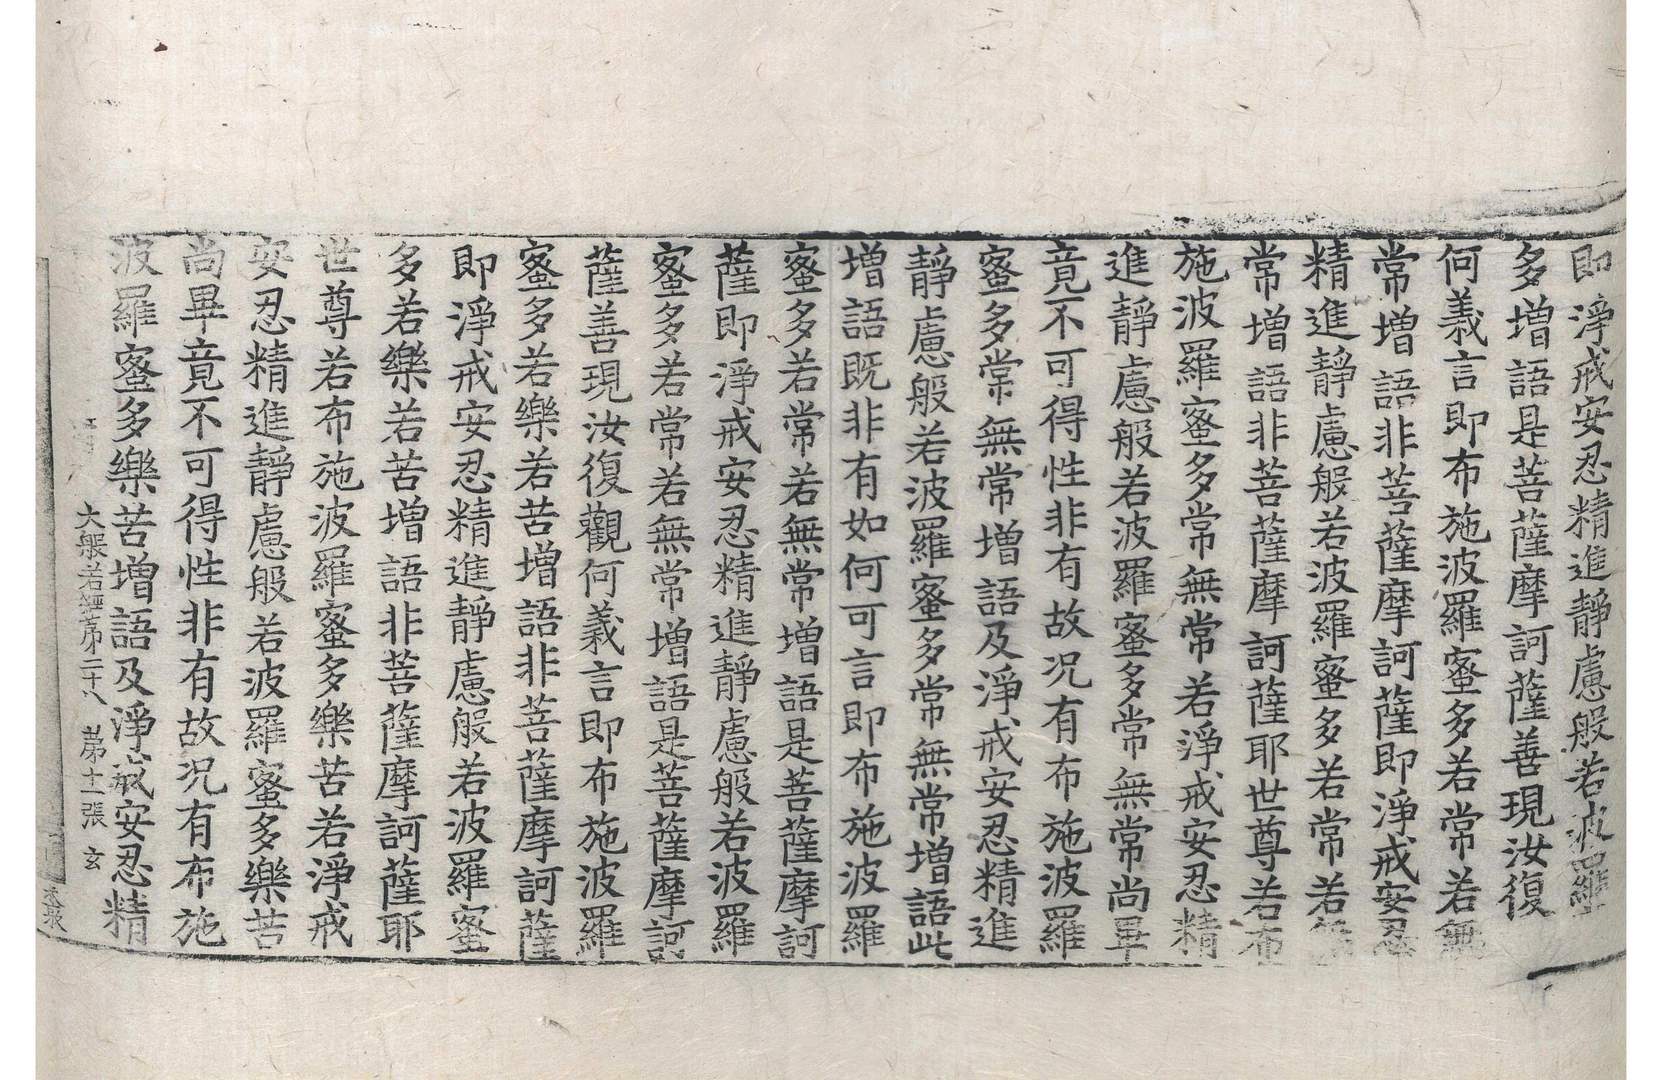 即淨戒安忍精進靜慮般若波羅蜜
多增語是菩薩摩訶薩善現汝復
何義言即布施波羅蜜多若常若無
常增語非菩薩摩訶薩即淨戒安忍
精進靜慮般若波羅蜜多若常若無
常增語非菩薩摩訶薩耶世尊若布
施波羅蜜多常無常若淨戒安忍精
進靜慮般若波羅蜜多常無常尚畢
竟不可得性非有故況有布施波羅
蜜多常無常增語及淨戒安忍精進
靜慮般若波羅蜜多常無常增語此
增語既非有如何可言即布施波羅
蜜多若常若無常增語是菩薩摩訶
薩即淨戒安忍精進靜慮般若波羅
蜜多若常若無常增語是菩薩摩訶
薩善現汝復觀何義言即布施波羅
蜜多若樂若苦增語非菩薩摩訶薩
即淨戒安忍精進靜慮般若波羅蜜
多若樂若苦增語非菩薩摩訶薩耶
世尊若布施波羅蜜多樂苦若淨戒
安忍精進靜慮般若波羅蜜多樂苦
尚畢竟不可得性非有故況有布施
波羅蜜多樂苦增語及淨戒安忍精
大般若經第二十八　第十一張　玄